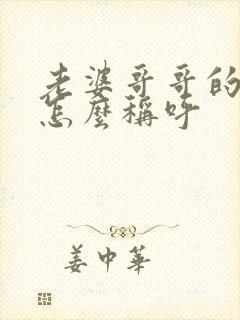 老婆哥哥的
怎麼稱呼
姜中華